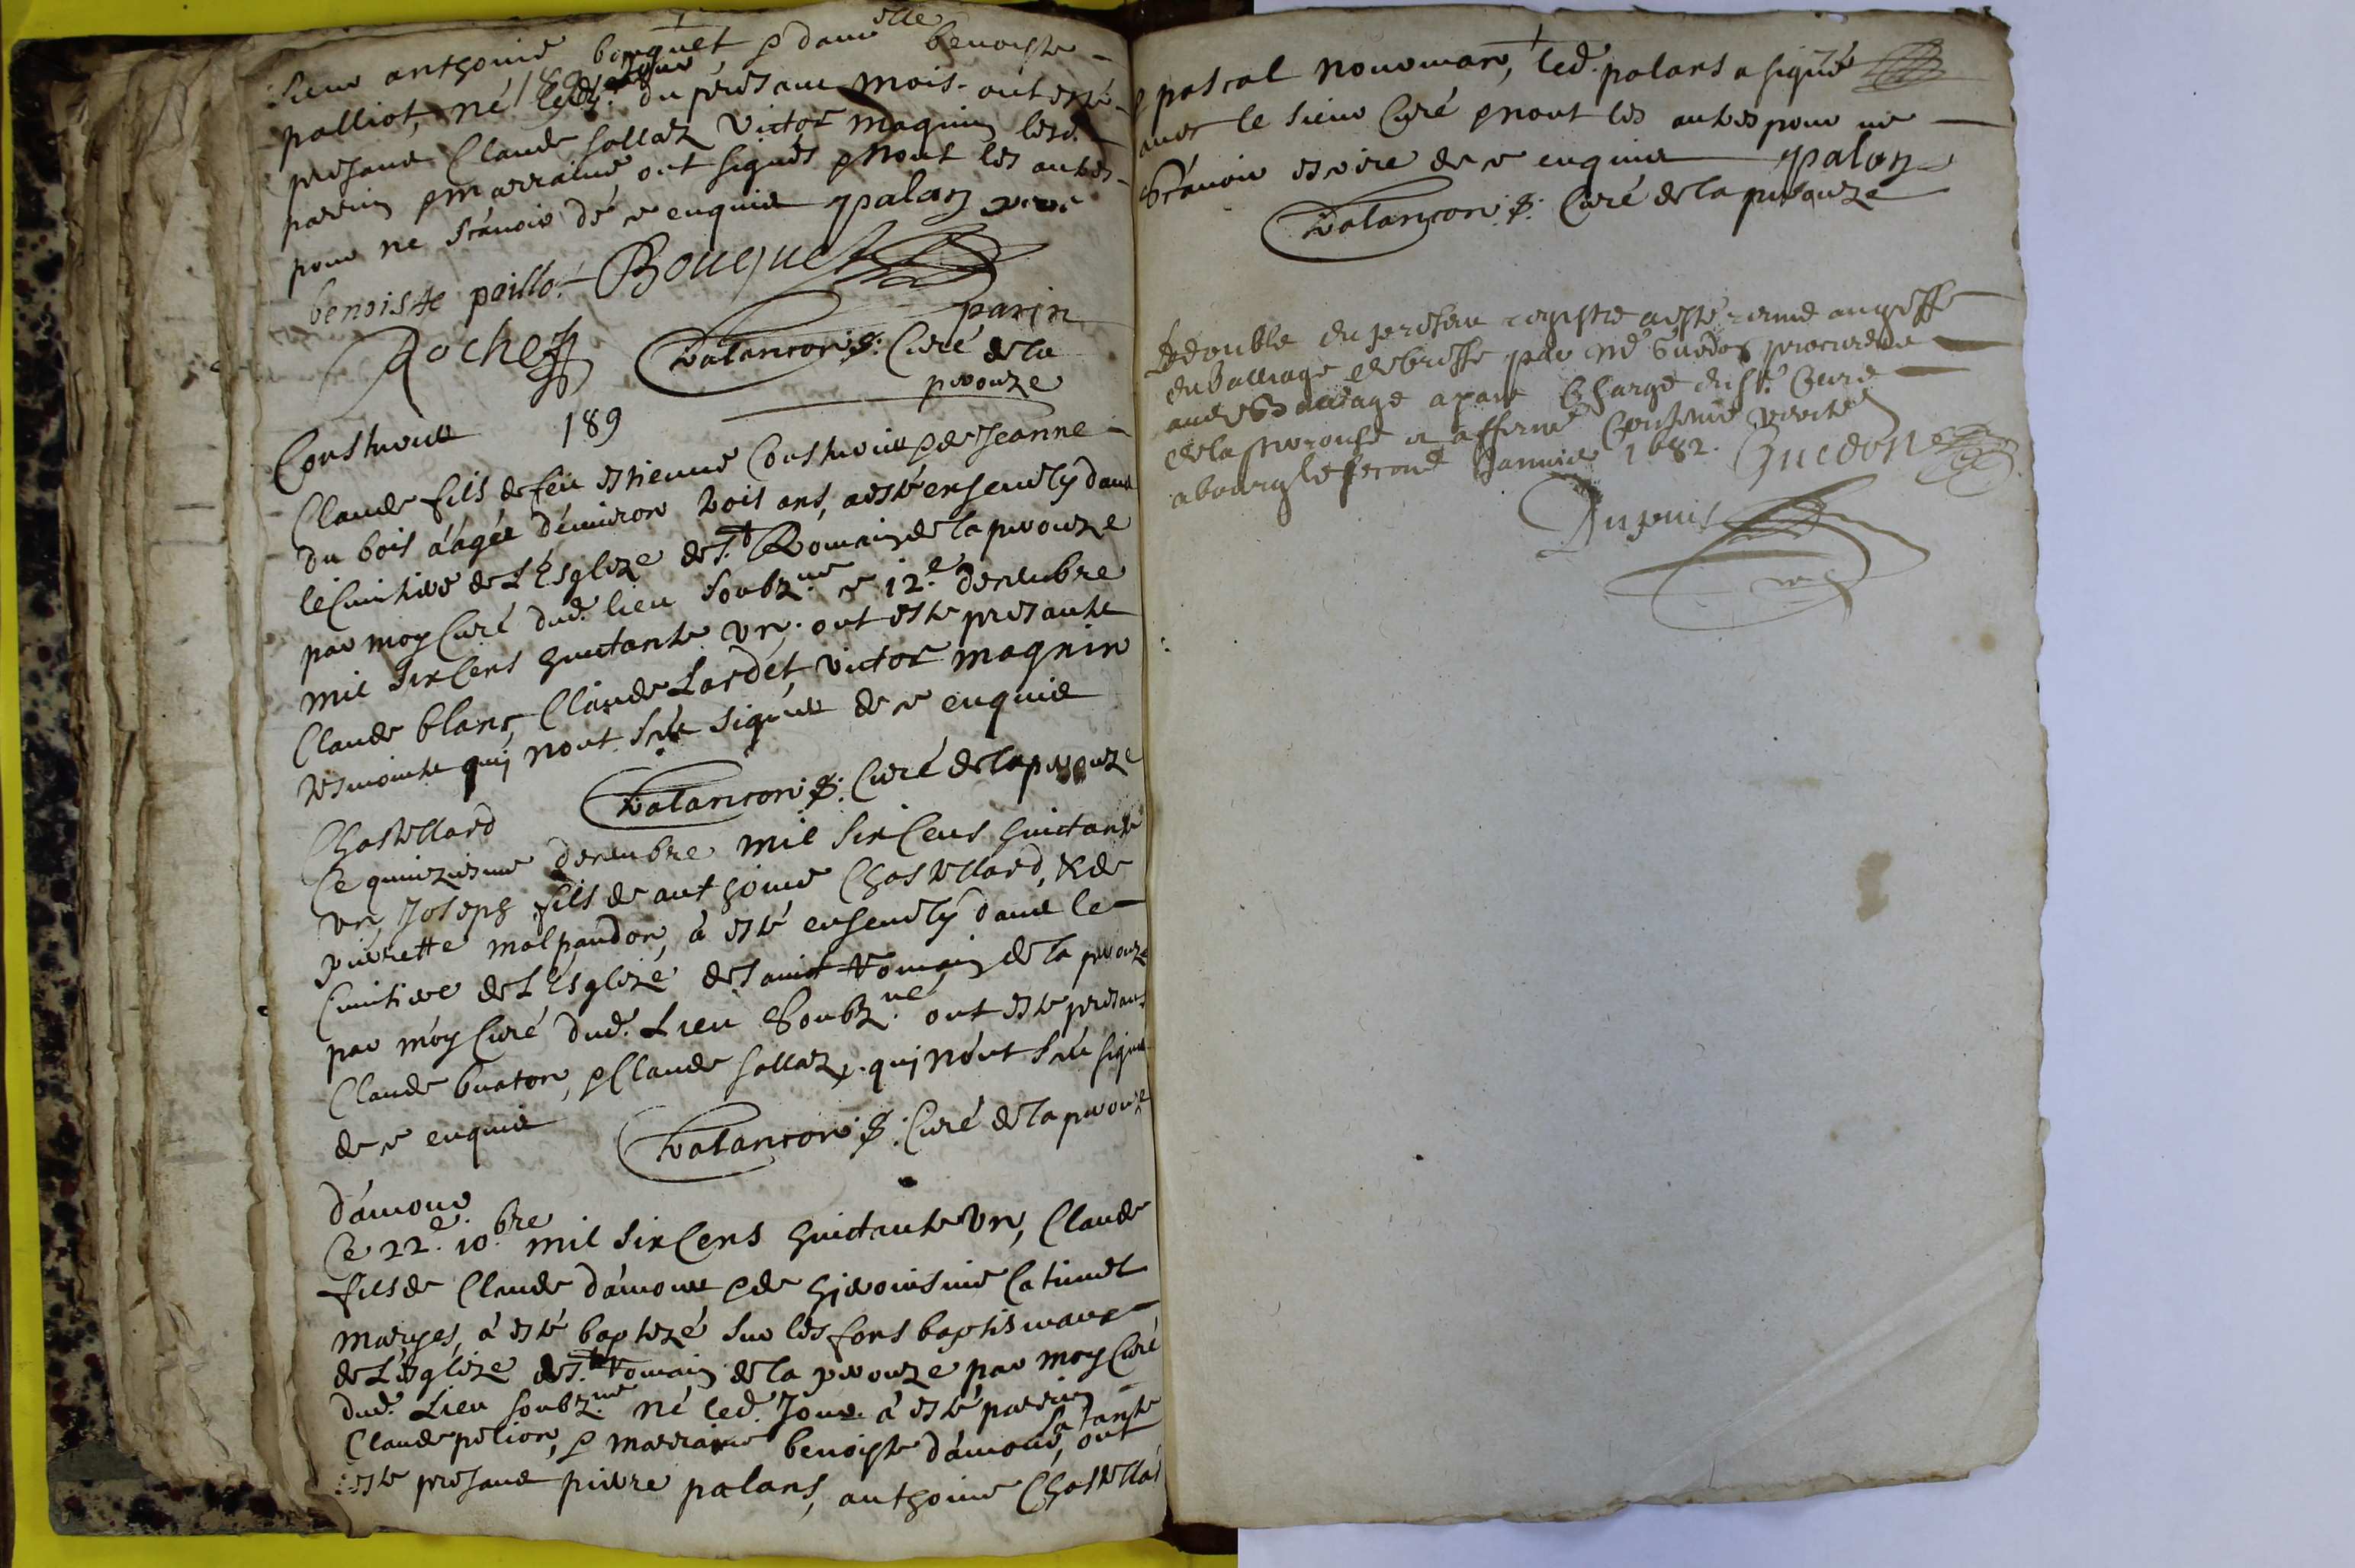 Sieur anthoine bouquet, & dam.elle benoiste
palliot, né led. jour du présant mois. ont esté
présans Claude sallaz victor magnin lesd.
parrin & marraine ont signés & nont les autres
pour ne sçavoir de ce enquis palan
benoiste paillot Bouquet
parin
Rochet Valancon p. Curé de la
pérouze
Constureur 189
Claude fils de feu estienne Constureur & de Jeanne
du bois aagée d'environ trois ans, a esté ensevely dans
le Cimitière de L'Esglize de S.t Romain de la pérouze
par moy Curé dud. lieu soubz.né ce 12.e décembre
mil six Cens huictante un. ont esté présants
Claude blanc, Claude Lardet, victor magnin
tesmoints quj nont sceu signer de ce enquis
Valancon p. Curé de la pérouze
Chastellard
Ce quinziesme décembre mil six Cens huictante
un, Joseph fils de anthoine Chastellard, & de
pierrette malpandon, à esté ensevely dans le
Cimitiere de L'Esglize de Sainct Romain de la pérouze
par moy Curé dud. Lieu Soubz.né ont esté présans
Claude buaton, & Claude sallaz, quj nont sceu signer
de ce enquis Valancon p. Curé de la pérouze
d'amour
Ce 22.e 10.bre mil six Cens huictante un, Claude
fils de Claude d'amour & de Catimel
maryes, à esté baptizé sur les fons baptismaux
de L'esglize de S.t Romain de la pérouze par moy Curé
dud. Lieu soubz.né né led. Jour à esté parrin
Claude pelion, & marraine benoiste d'amour, sa tante ont
esté présans pierre palans, anthoine Chastellar
& pascal nouvman, led. palans a signé
avec le sieur Curé & nont les autres pour ne
Sçavoir escrire de ce enquis palan
Valancon p. Curé de la pérouze
Le double du présent registre a esté remis au greffe
du balliage de bresse par M.e Guedon procureur
aud. balliage ayant Charge du s.r Curé
de la perouse et affermé Contenir vérité
a bourg le second Janvier 1682. Guedon
Dupuis